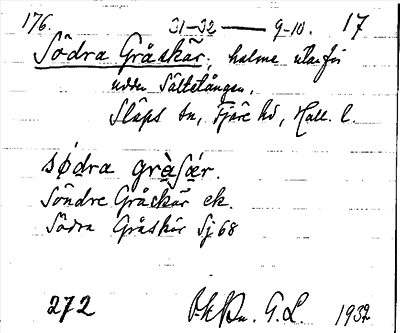 176. 31-32 — 9-10. 17
Södra Gråskär, holme utanför
udden Sältetången,
Släps sn, Fjäre hd, Hall. l.
sødra grà∫ær.
Söndre Gråskär ek.
Södra Gråskär Sj 68
272 G. L. 1932